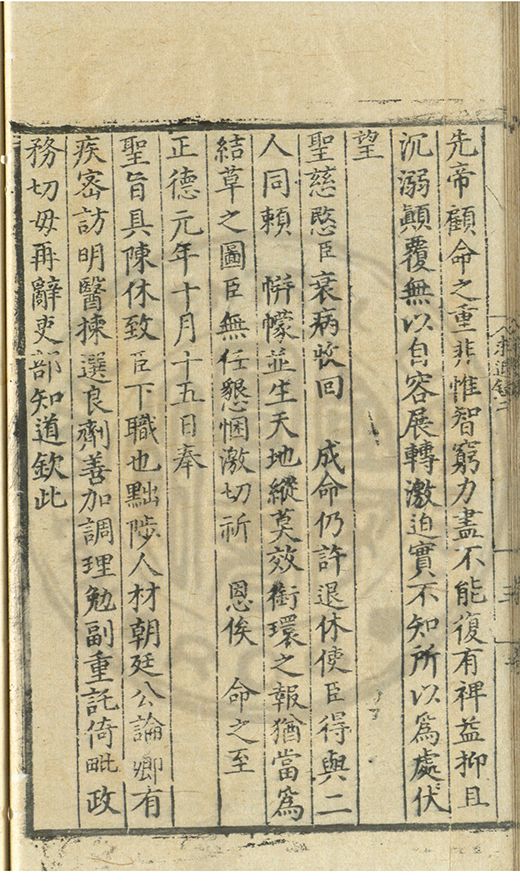 先帝顧命之重非惟智窮力盡不能復有裨益抑且
沉溺顚覆無以自容展轉激迫實不知所以爲處伏
望
聖慈愍臣衰病收回　成命仍許退休使臣得與二
人同賴　帡幪並生天地縱莫效銜環之報猶當爲
結草之圖臣無任懇悃激切祈　恩俟　命之至
正德元年十月十五日奉
聖旨具陳休致臣下職也黜陟人材朝廷公論卿有
疾宻訪明醫揀選良劑善加調理勉副重託倚毗政
務切毋再辭吏部知道欽此